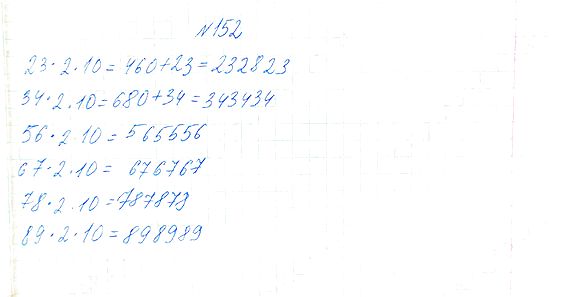 №152
23·2·10=460+23=232823
34·2.10=680+34=343434
56·2 10=565656
67·2·10= 676767
78·2.10=787873
89·2·10=898989